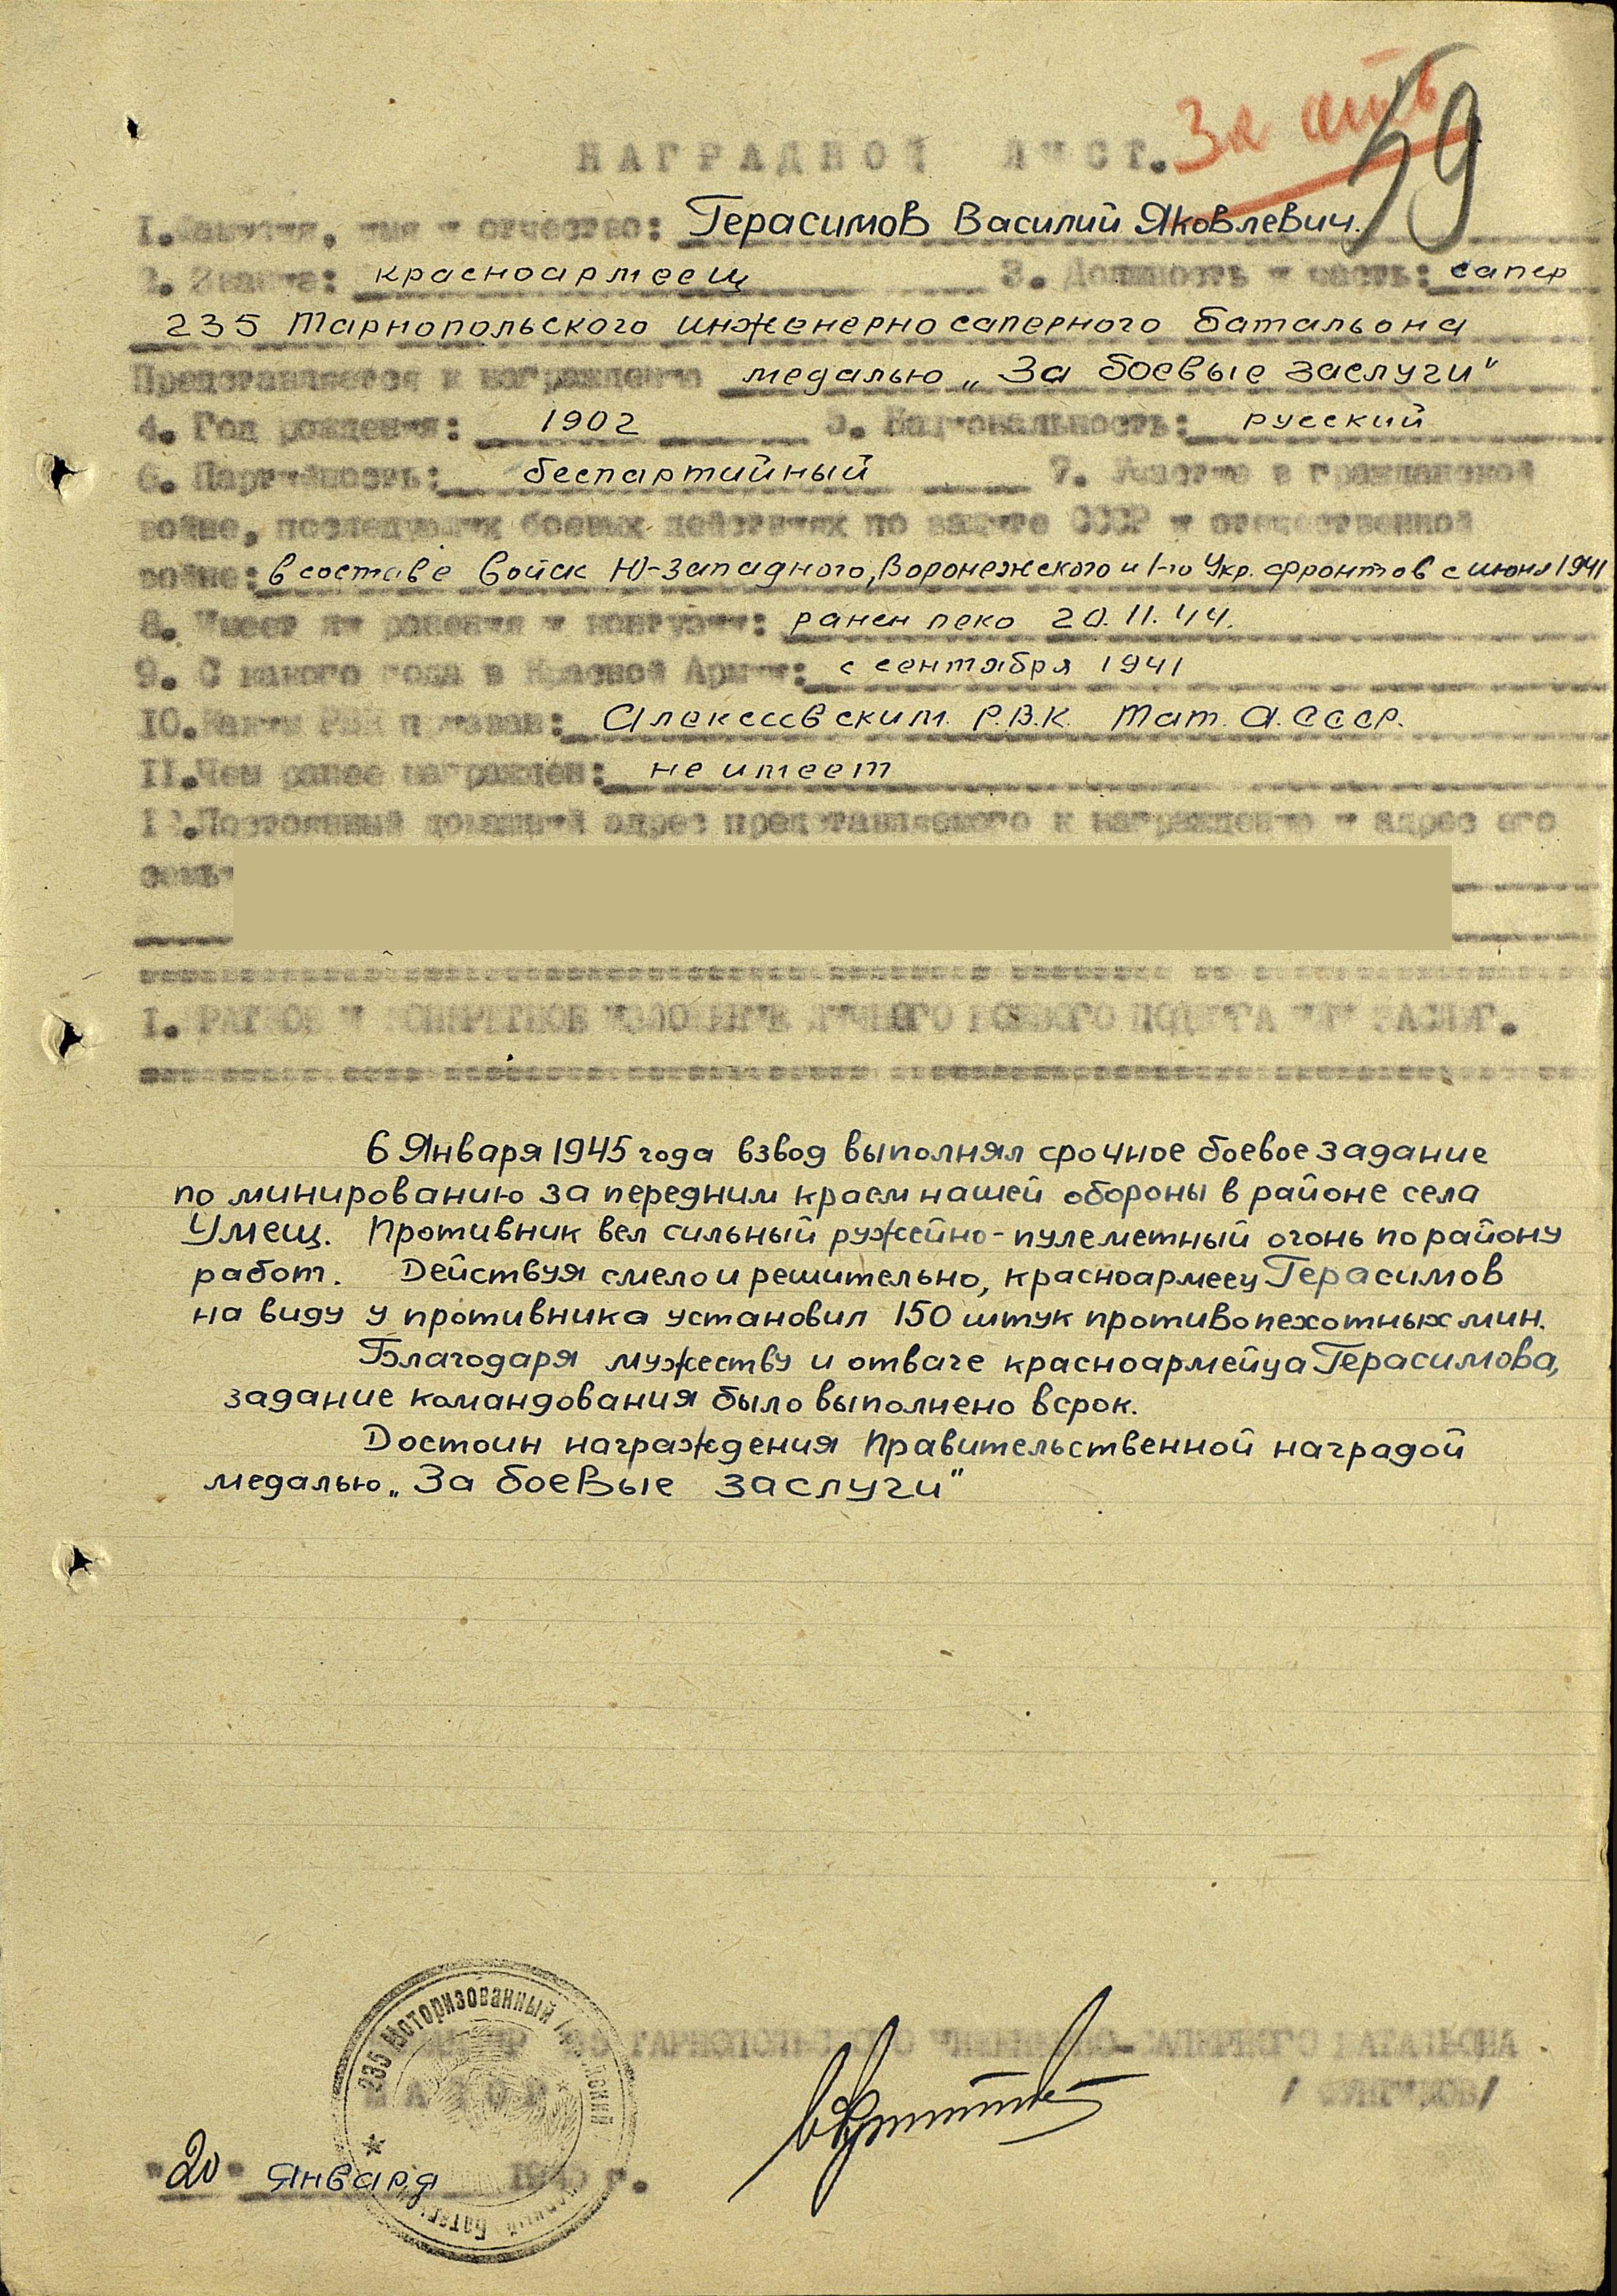 59
НАГРАДНОЙ ЛИСТ.
1. Фамилия, имя и отчество: Герасимов Василий Яковлевич.
2. Звание: красноармеец 3. Должность и часть: сапер
235 Тарнопольского инженерно саперного батальона
Представляется к награждению медалью „За боевые заслуги"
4. Год рождения: 1902 5. Национальность: русский
6. Партийность: беспартийный 7. Участие в гражданской
войне, последующих боевых действиях по защите СССР и отечественной
войне: в составе войск Ю-Западного, Воронежского и 1-го Укр. фронтов с июня 1941
8. Имеет ли ранения и контузии: ранен леко 20.11.44.
9. С какого года в Красной Армии: с сентября 1941
10. Каким РВК призван: Алексеевским Р.В.К. Тат. А.СССР.
11. Чем ранее награжден: не имеет
12. Постоянный домашний адрес представляемого к награждению и адрес его
семьи
I. КРАТКОЕ И КОНКРЕТНОЕ ИЗЛОЖЕНИЕ ЛИЧНОГО БОЕВОГО ПОДВИГА ИЛИ ЗАСЛУГ.
6 Января 1945 года взвод выполнял срочное боевое задание
по минированию за передним краем нашей обороны в районе села
Умещ. Противник вел сильный ружейно-пулеметный огонь по району
работ. Действуя смело и решительно, красноармеец Герасимов
на виду у противника установил 150 штук противопехотных мин.
Благодаря мужеству и отваге красноармейца Герасимова,
задание командования было выполнено в срок.
Достоин награждения Правительственной наградой
медалью „За боевые заслуги"
КОМАНДИР 235 ТАРНОПОЛЬСКОГО ИНЖЕНЕРНО-САПЕРНОГО БАТАЛЬОНА
МАЙОР
"20" января 1945 г.
235 Моторизованный